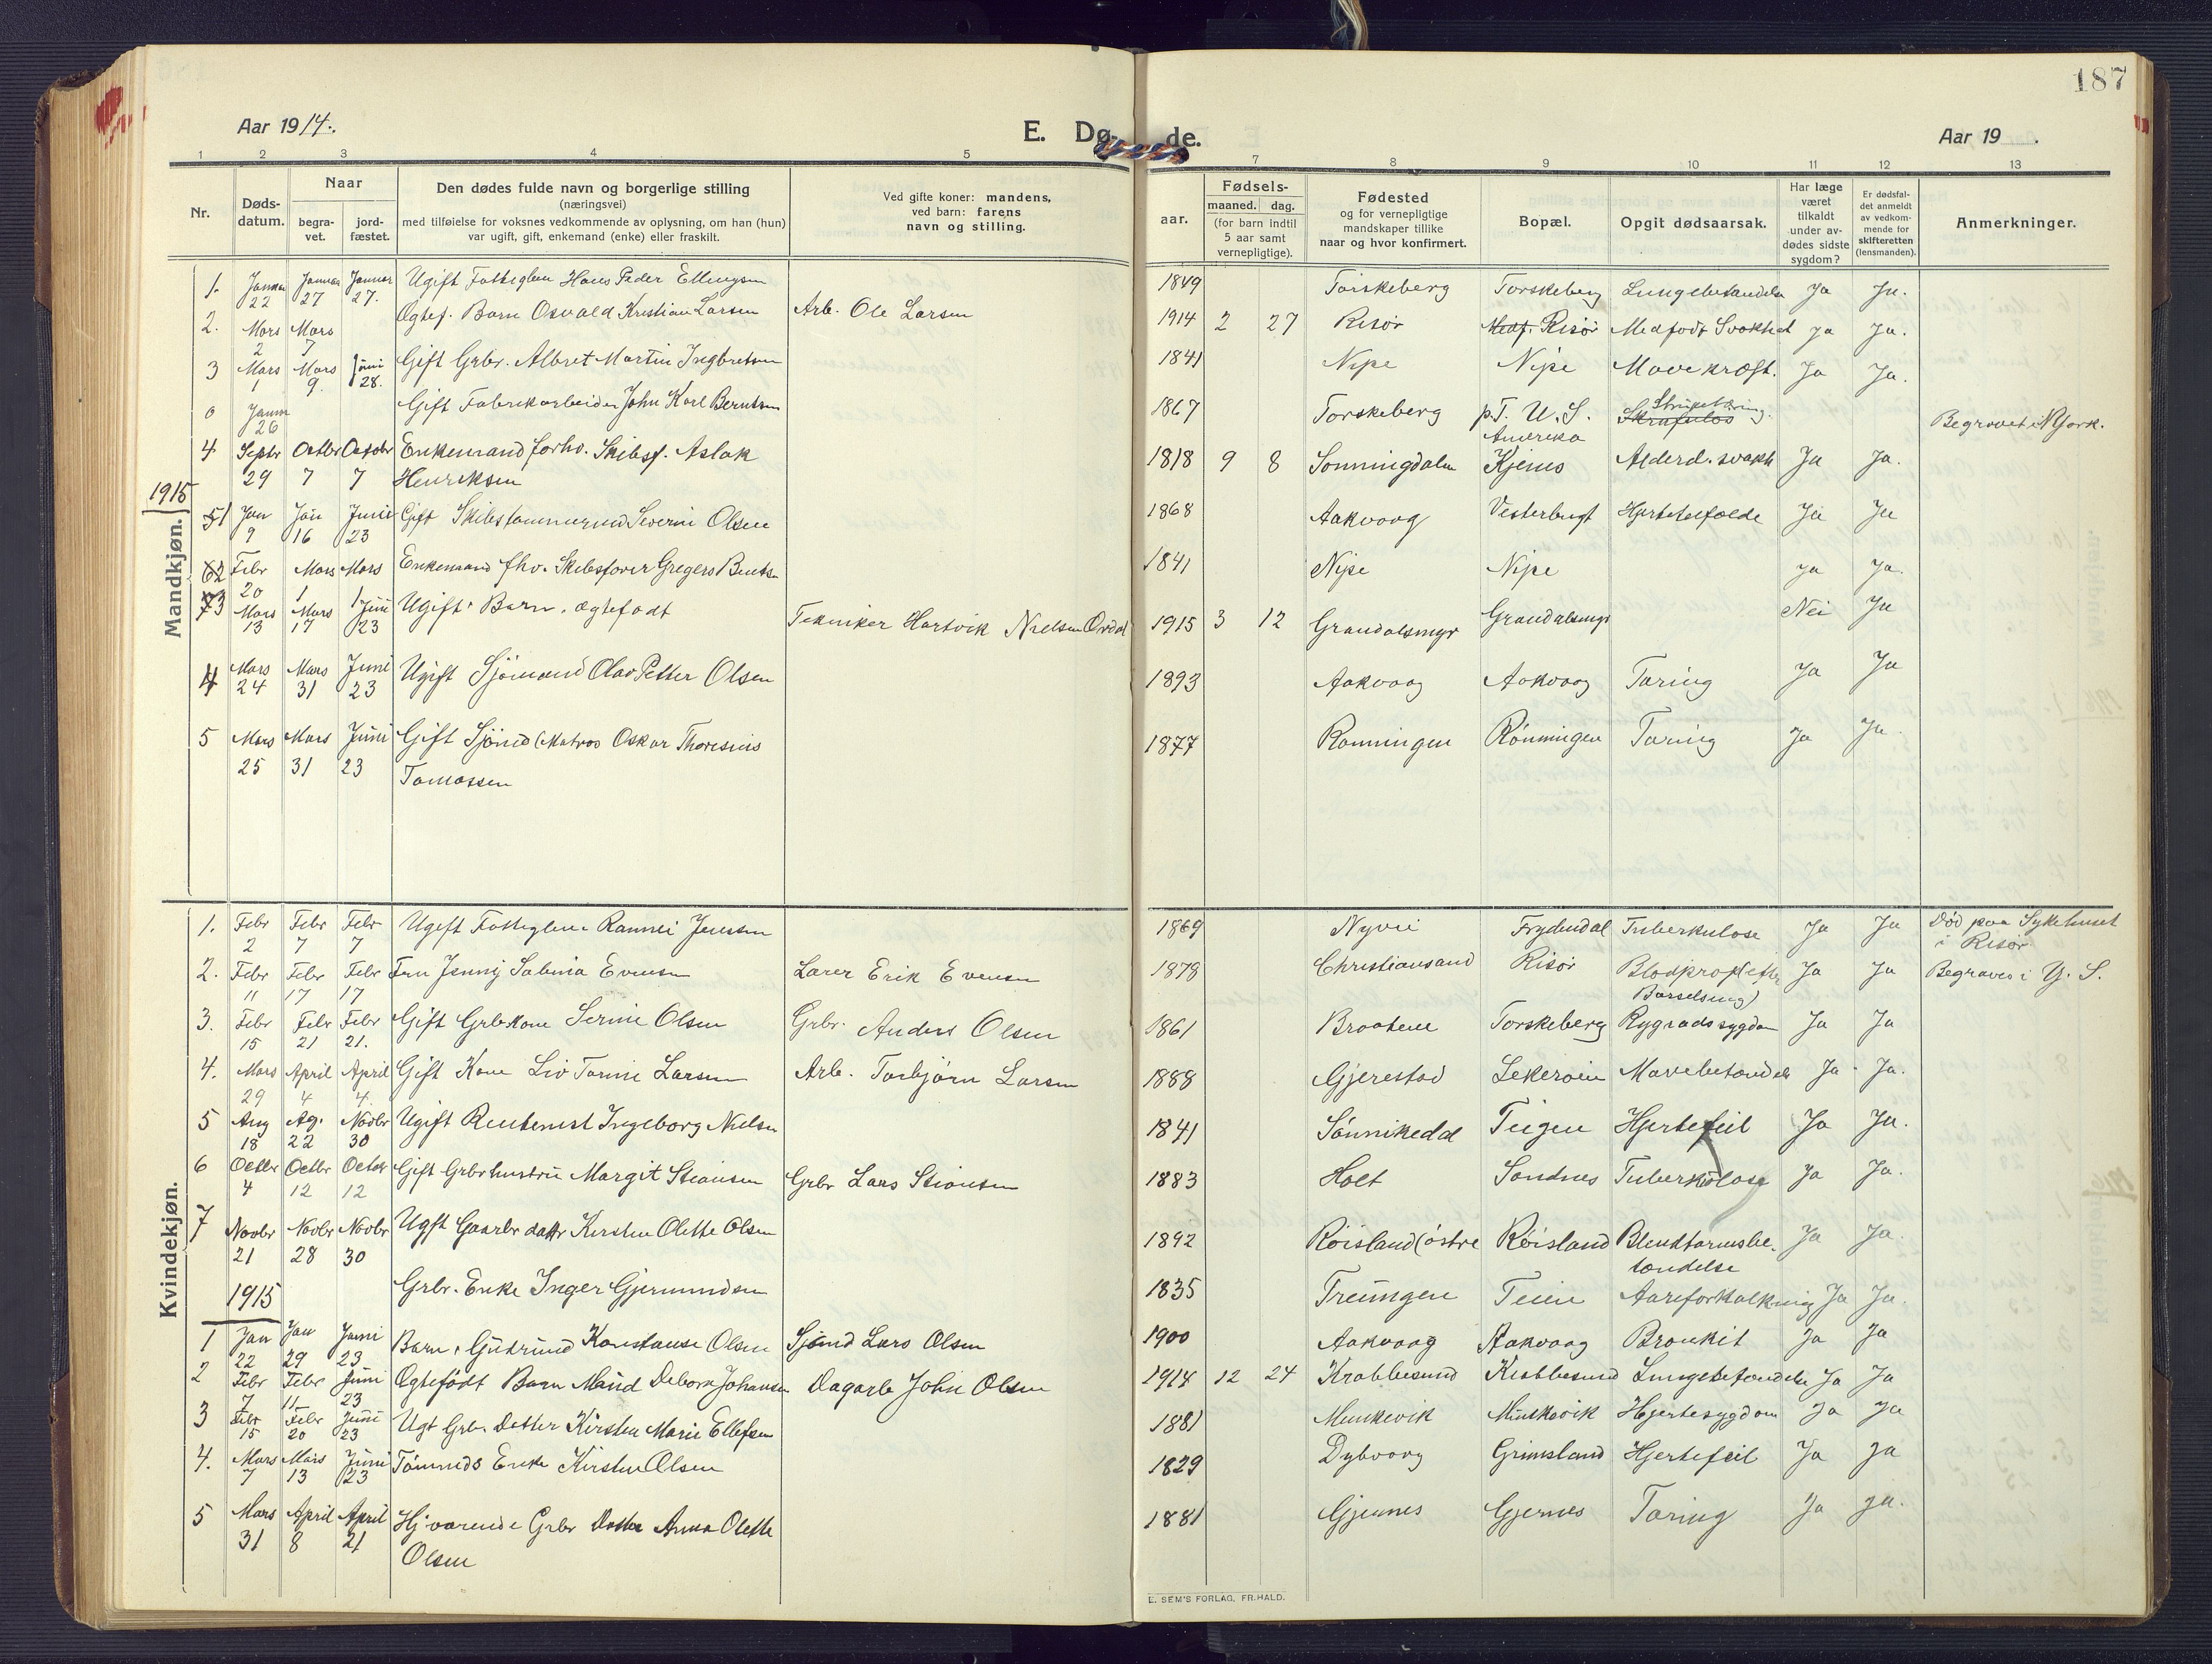 187
Aar 1914.
E. Dø- de.
Aar 19 .
1 2 3 4 5 7 8 9 10 11 12 13
Nr.
Døds-
datum.
Naar
begra-
vet.
jord-
fæstet.
Den dødes fulde navn og borgerlige stilling
(næringsvei)
med tilføielse for voksnes vedkommende av oplysning, om han (hun)
var ugift, gift, enkemand (enke) eller fraskilt.
Ved gifte koner: mandens,
ved barn: farens
navn og stilling.
aar.
Fødsels-
maaned. dag.
(for barn indtil
5 aar samt
vernepligtige).
Fødested
og for vernepligtige
mandskaper tillike
naar og hvor konfirmert.
Bopæl.
Opgit dødsaarsak.
Har læge
været
tilkaldt
under av-
dødes sidste
sygdom?
Er dødsfal-
det anmeldt
av vedkom-
mende for
skifteretten
(lensmanden).
Anmerkninger.
Mandkjøn.
1. Januar 22 Januar 27 Januar 27. Ugift Hans Peder Ellingsen 1849 Torskeberg Torskeberg Lungebetændelse Ja Ja.
2. Mars 2 Mars 7 Ægtef. Barn Osvald Kristian Larsen Arb. Ole Larsen 1914 2 27 Risør Risør Medfødt Svakhed Ja Ja.
3 Mars 1 Mars 9. Juni 28. Gift Grbr. Albret Martin Ingbretsen 1841 Nipe Nipe Mavekræft. Ja Ja.
0 Januar 26 Gift Fabrikarbeider John Karl Berntsen 1867 Torskeberg p.T. U. S. Amerika Skrufuløs Strupetæring. Begravet i N York.
4 Septbr 29 Octbr 7 Octobr 7 Enkemand forhv. Skibsf. Aslak
Henriksen 1818 9 8 Sønningdalen Kjenes Alderd. svakh Ja Ja.
1915
1 Jan 9 Jan 16 Juni 23 Gift Skibstømmermd Severin Olsen 1868 Aakvaag Vesterbugt Hjertetilfælde Ja Ja
2 Febr 20 Mars 1 Mars 1 Enkemand fhv. Skibsfører Gregers Bentsen 1841 Nipe Nipe Ja Ja.
3 Mars 13 Mars 17 Juni 23 Ugift Barn. ægtefødt Tekniker Hartvik Nielsen 1915 3 12 Grandalsmyr Grandalsmyr Nei Ja
4 Mars 24 Mars 31 Juni 23 Ugift Sjømand Olav Petter Olsen 1893 Aakvaag Aakvaag Tæring Ja Ja
5 Mars 25 Mars 31 Juni 23 Gift Sjømd (Matros Oskar Thoresius
Tomassen 1877 Rønningen Rønningen Tæring Ja Ja.
Kvindekjøn.
1. Febr 2 Febr 7 Febr 7 Ugift Rannei Jenssen 1869 Nyvei Frydendal Tuberkulose Ja Ja Død paa Sykehuset
i Risør.
2. Febr 11 Febr 17 Febr 17 Fru Jenny Sabinia Evensen Lærer Erik Evensen 1878 Christiansand Risør Blodprop (efter
Barselseng) Ja Ja Begraves i Y. S.
3. Febr 15 Febr 21 Febr 21. Gift Grbrkone Serine Olsen Grbr. Anders Olsen 1861 Braatene Torskeberg Rygradssygdom Ja Ja
4. Mars 29 April 4 April 4. Gift Kone Liv Tomine Larsen Arb. Torbjørn Larsen 1888 Gjerestad Lekerøien Mavebetændels Ja Ja.
5 Aug 18 Ag. 22 Novbr 30 Ugift Rentenist Ingeborg Nielsen 1841 Sannikedal Teigen Hjertefeil Ja Ja.
6 Octbr 4 Octbr 12 Octobr 12 Gift Grbrhustru Margit Stiansen Grbr Lars Stiansen 1883 Holt Sandnes Tuberkulose Ja Ja.
7 Novbr 21 Novbr 28 Novbr 30 Ugift Gaarbr dattr Kirsten Olette Olsen 1892 Røisland (østre Røisland Blindtarmsbe.
tændelse Ja Ja.
1915
Grbr. Enke Inger Gjermundsen 1835 Treungen Teien Aareforkalkning Ja Ja.
1 Jan 22 Jan 29 Juni 23 Barn, Gudrund Konstanse Olsen Sjømd Lars Olsen 1900 Aakvaag Aakvaag Bronkit Ja Ja
2 Febr 7 Febr 11 Juni 23 Ægtefødt Barn Maud Debora Johansen Dagarb John Olsen 1914 12 24 Krabbesund Krabbesund Lungebetændelse Ja Ja
3 Febr 15 Febr 20 Juni 23 Ugt Grbr. Datter Kirsten Marie Ellefsen 1881 Munkevik Munkevik Hjertesygdom Ja Ja
4. Mars 7 Mars 13 Juni 23 Tømmds Enke Kirsten Olsen 1829 Dybvaag Grimsland Hjertefeil Ja Ja
5 Mars 31 April 8 April 21 Hjværende Grbr Datter Anna Olette
Olsen 1881 Gjernes Gjernes Tæring Ja Ja.
E. SEM'S FORLAG, FR.HALD.